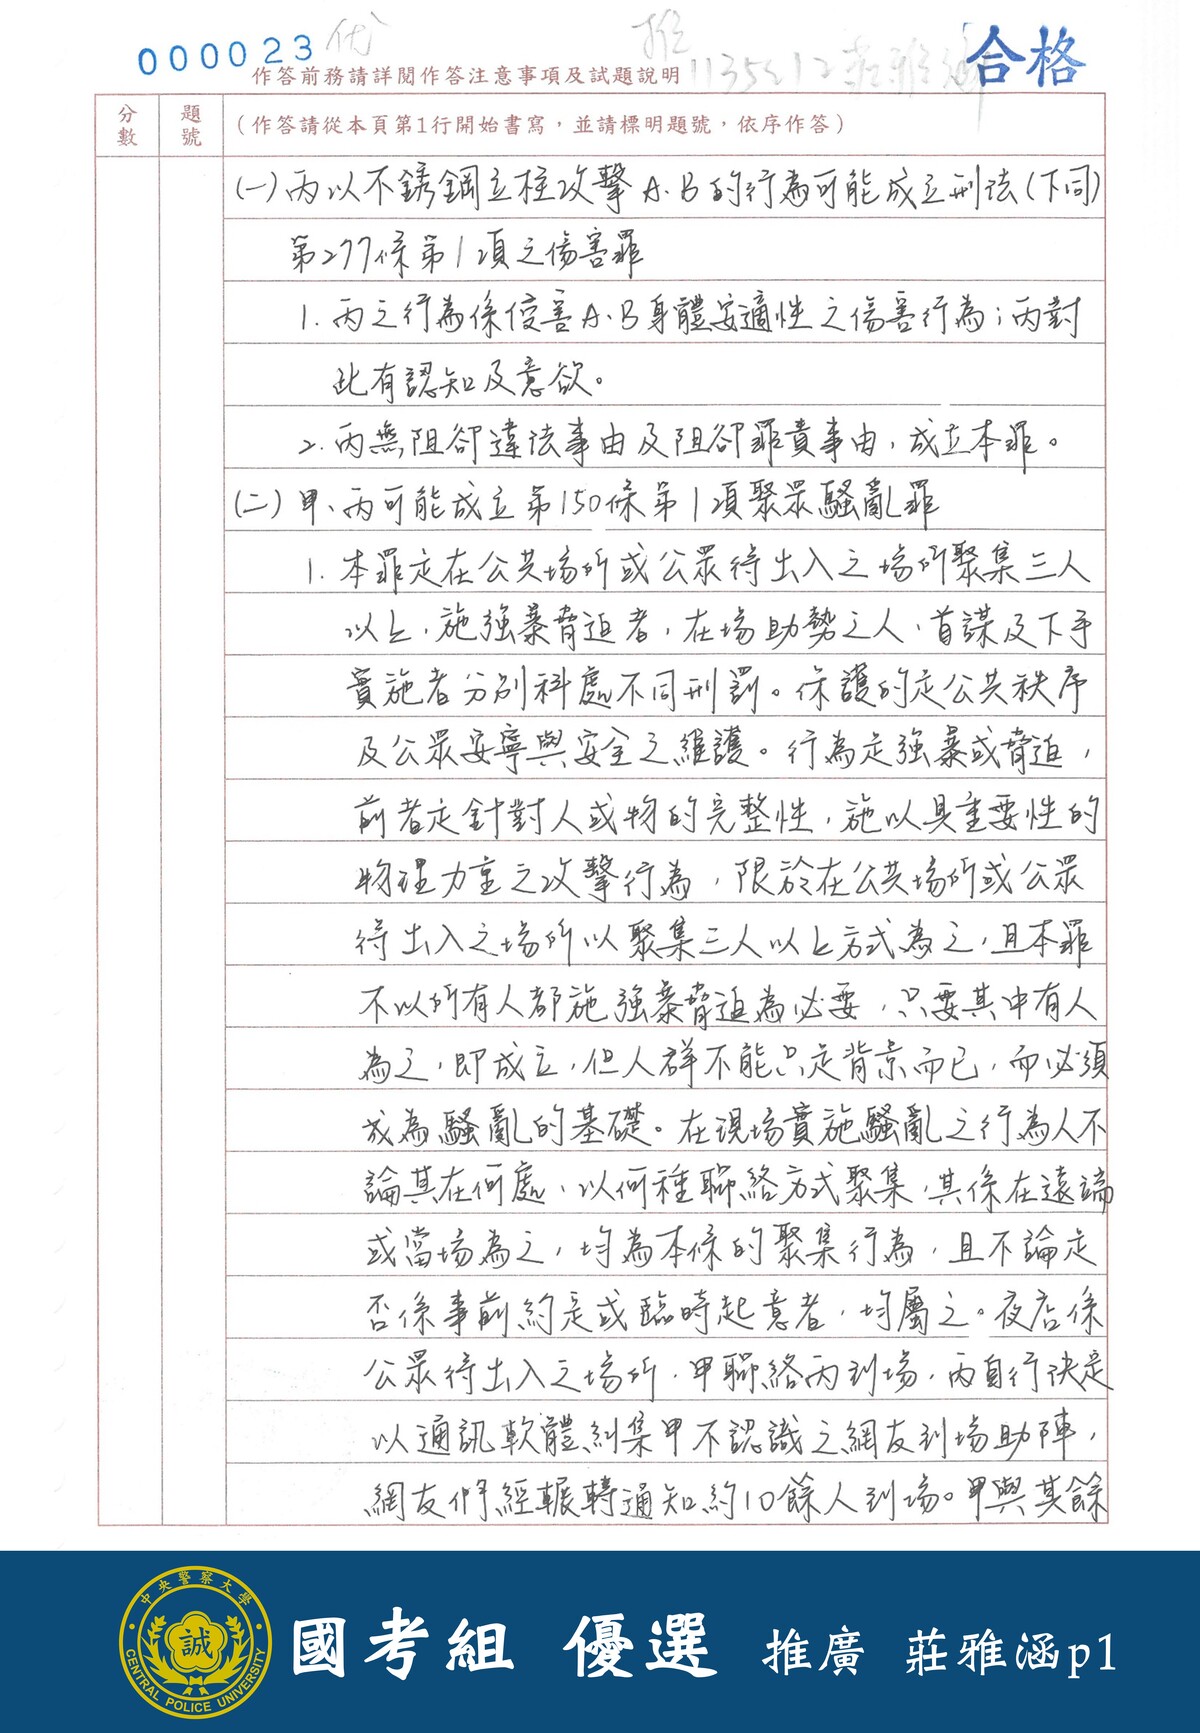 000023
優
推
合格
作答前務請詳閱作答注意事項及試題說明
1135212 莊雅涵
分數
題號
(作答請從本頁第1行開始書寫，並請標明題號，依序作答)
(一)丙以不銹鋼立柱攻擊A.B的行為可能成立刑法(下同)
第277條第1項之傷害罪
1.丙之行為係侵害A.B身體安適性之傷害行為；丙對
此有認知及意欲。
2.丙無阻卻違法事由及阻卻罪責事由，成立本罪。
(二)甲、丙可能成立第150條第1項聚眾騷亂罪
1.本罪是在公共場所或公眾得出入之場所聚集三人
以上，施強暴脅迫者，在場助勢之人、首謀及下手
實施者分別科處不同刑罰。保護的是公共秩序
及公眾安寧與安全之維護。行為是強暴或脅迫，
前者是針對人或物的完整性，施以具重要性的
物理力量之攻擊行為，限於在公共場所或公眾
得出入之場所以聚集三人以上方式為之，且本罪
不以所有人都施強暴脅迫為必要，只要其中有人
為之，即成立，但人群不能只是背景而已，而必須
成為騷亂的基礎。在現場實施騷亂之行為人不
論其在何處、以何種聯絡方式聚集，其係在遠端
或當場為之，均為本條的聚集行為，且不論是
否係事前約定或臨時起意者，均屬之。夜店係
公眾得出入之場所，甲聯絡丙到場，丙自行決定
以通訊軟體糾集甲不認識之網友到場助陣，
網友們經輾轉通知約10餘人到場。甲與其餘
中央警察大學
誠
CENTRAL POLICE UNIVERSITY
國考組 優選 推廣 莊雅涵p1